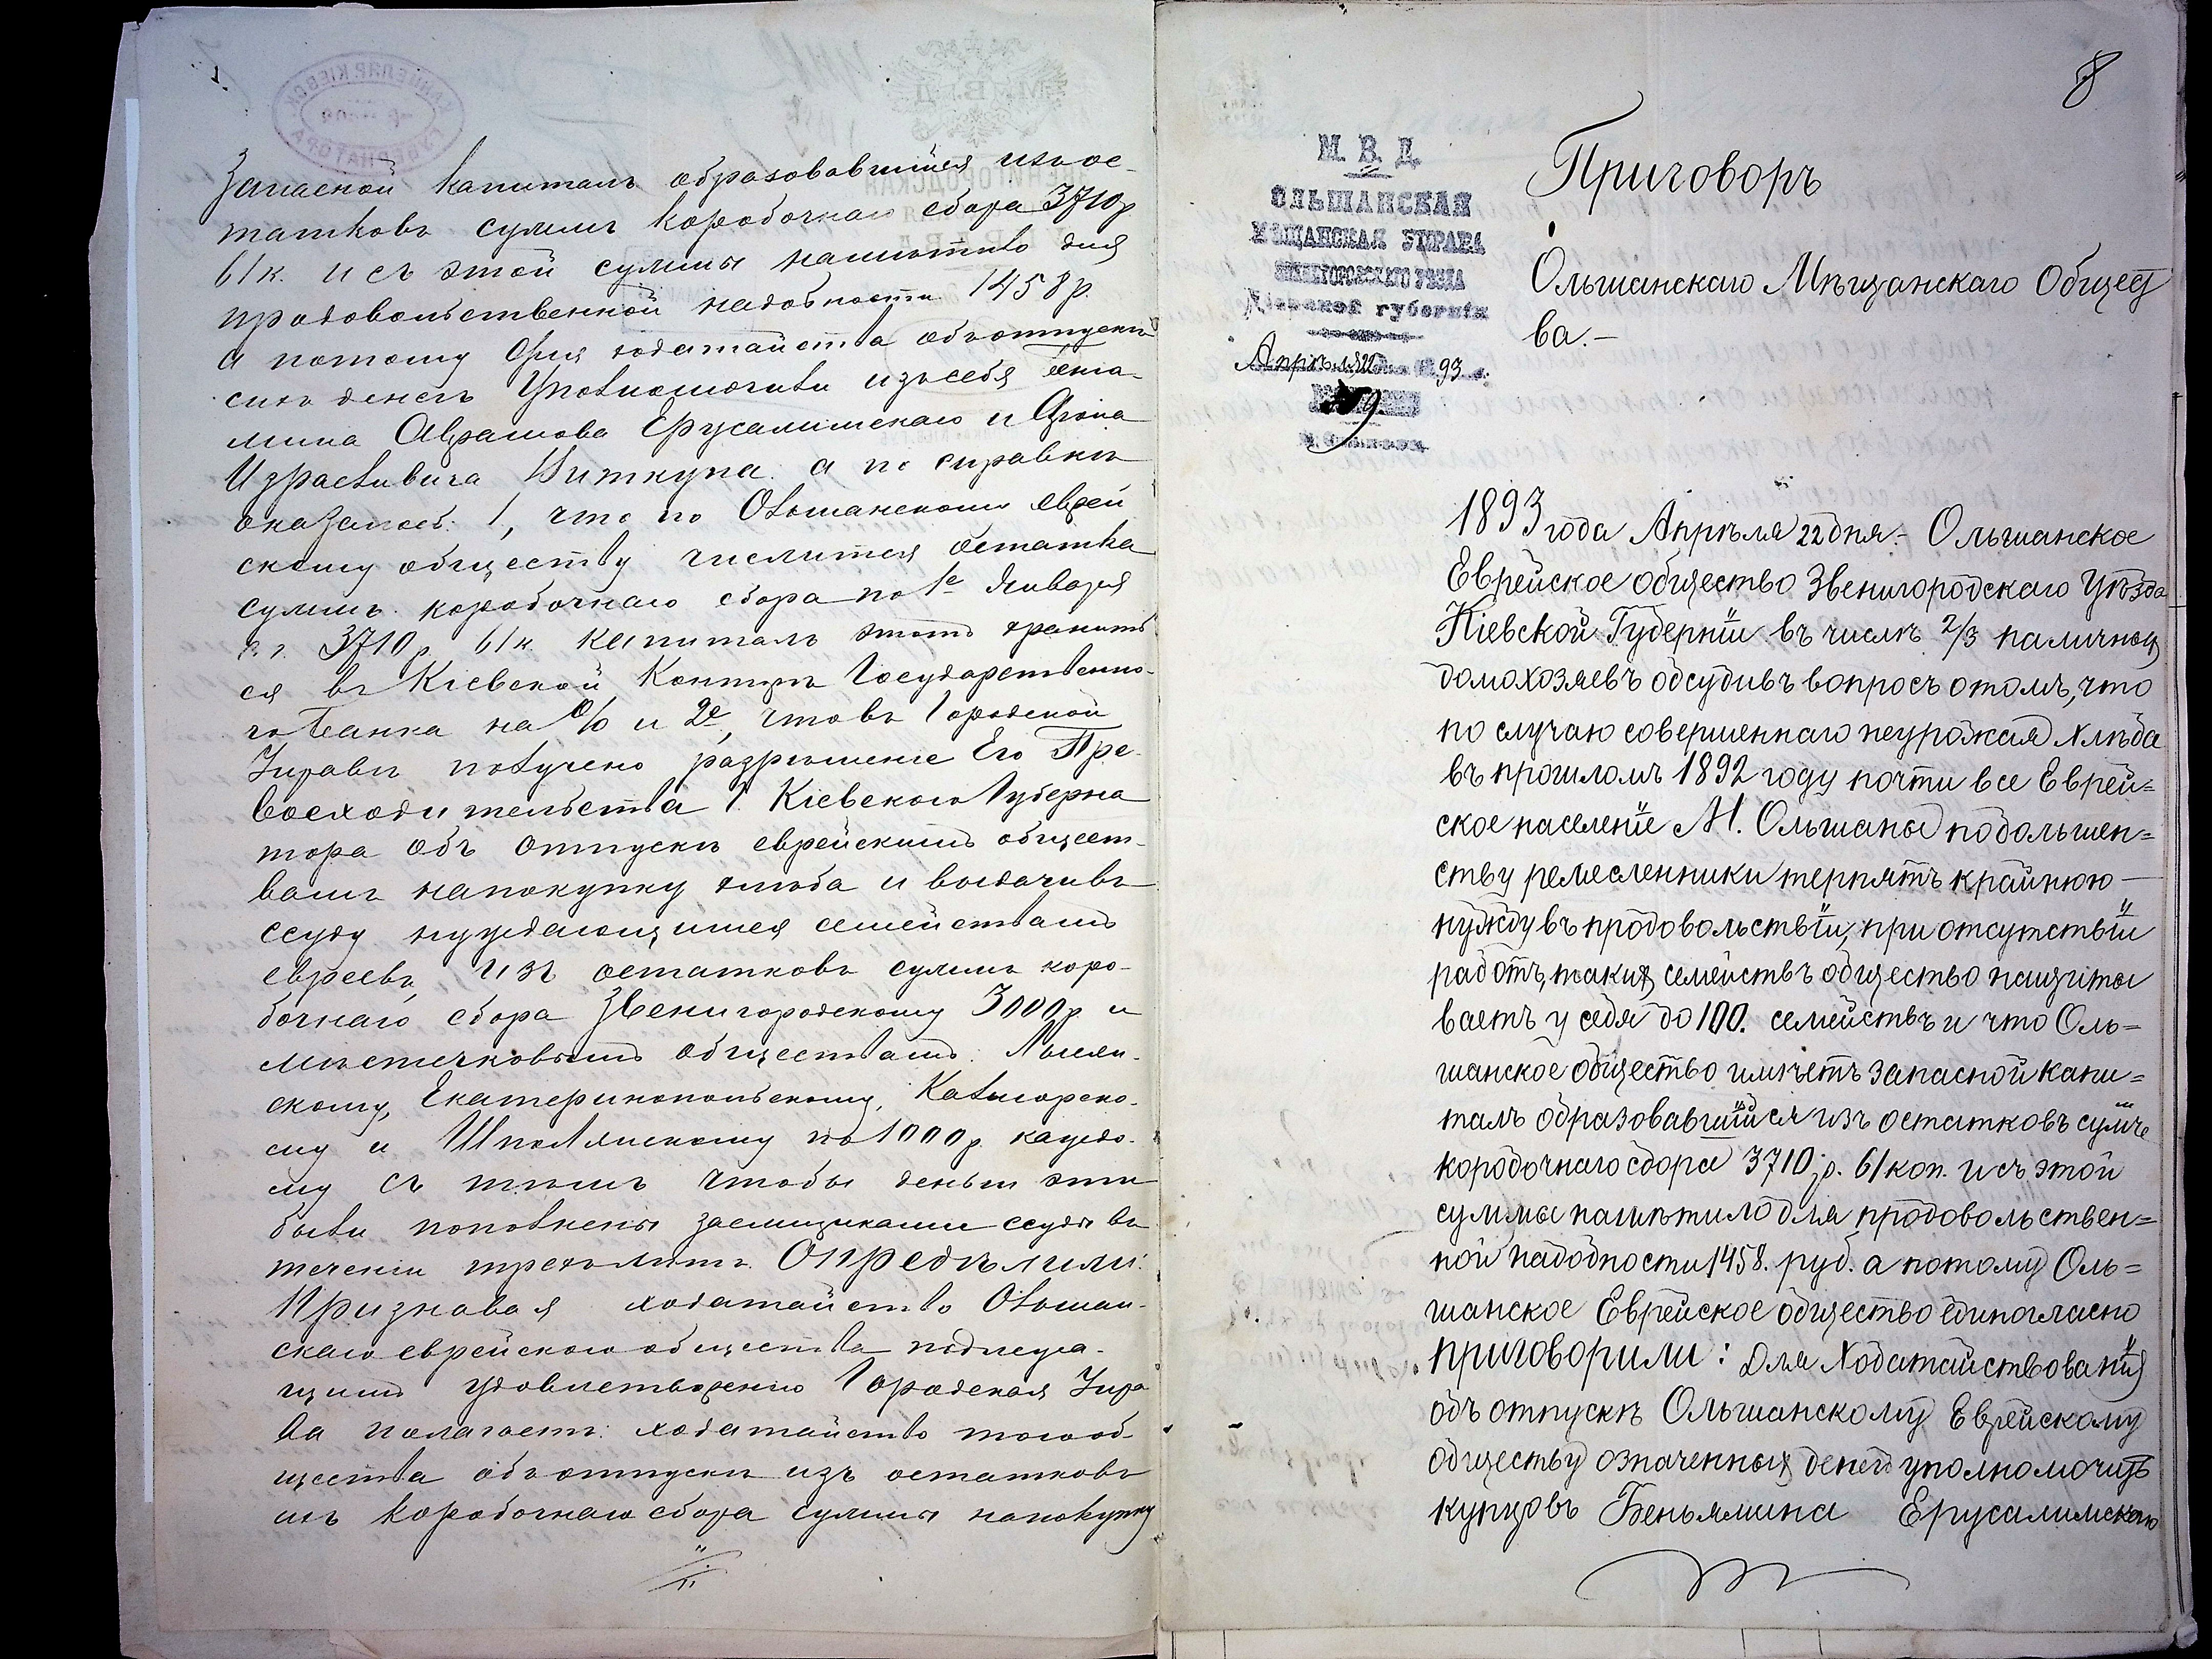 Запасной капиталъ образовавшійся изъ ос-
татковъ суммъ коробочнаго сбора 3710 р
61 к. и съ этой суммы намѣтило для
продовольственной надобности 1458 р.
а потому для ходатайства объ отпускѣ
сихъ денегъ уполномочили изъ себя Бенія-
мина Аврамова Ерусалимскаго и
Израелевича Виткупа а по справкѣ
оказалось: 1, что по Ольшанскому еврей
скому обществу числится остатка
суммъ коробочнаго сбора по 1е Января
с. г. 3710 р. 61 к. Капиталъ этотъ хранит
ся въ Кіевской Конторѣ Государственна-
го банка на % и 2е, что въ Городской
Управѣ получено разрѣшеніе Его Пре-
восходительства Г. Кіевскаго Губерна
тора объ отпускѣ еврейскимъ общест-
вамъ на покупку хлѣба и выдачи въ
ссуду нуждающимся семействамъ
евреевъ, изъ остатковъ суммъ коро-
бочнаго сбора Звенигородскому 3000 р и
мѣстечковымъ обществамъ: Лысян-
скому, Екатеринопольскому, Калигорско-
му и Шполянскому по 1000 р. каждо-
му съ тѣмъ чтобы деньги эти
были пополнены заемщиками ссуды въ
теченіи трехъ лѣтъ. Опредѣлили:
Признавая ходатайство Ольшан-
скаго еврейскаго общества подлежа-
щимъ удовлетворенію Городская Упра
ва полагаетъ: ходатайство того об-
щества объ отпускѣ изъ остатковъ
ихъ коробочнаго сбора суммы на покупку
8
М. В. Д.
ОЛЬШАНСКАЯ
МѢЩАНСКАЯ УПРАВА
ЗВЕНИГОРОДСКАГО УѢЗДА
Кіевской губерніи
Апрѣля 22 дня 1893 г.
9.
м. Ольшана
Приговоръ
Ольшанскаго Мѣщанскаго Общест
ва.-
1893 года Апрѣля 22 дня.- Ольшанское
Еврейское общество Звенигородскаго Уѣзда
Кіевской Губерніи въ числѣ 2/3 наличныхъ
домохозяевъ обсудивъ вопросъ о томъ, что
по случаю совершеннаго неурожая хлѣба
въ прошломъ 1892 году почти все Еврей=
ское населеніе М. Ольшаны по большен=
ству ремесленники терпятъ крайнюю —
нужду въ продовольствіи, при отсутствіи
работъ, такихъ семействъ общество насчиты
ваетъ у себя до 100. семействъ и что Оль=
шанское общество имѣетъ запасной капи=
талъ образовавшійся изъ остатковъ суммъ
коробочнаго сбора 3710 р. 61 коп. и съ этой
суммы намѣтило для продовольствен=
ной надобности 1458. руб. а потому Оль=
шанское Еврейское общество единогласно
приговорили: для Ходатайствованія
объ отпускѣ Ольшанскому Еврейскому
обществу означенныхъ денегъ уполномочить
купцовъ Беньямина Ерусалимскаго